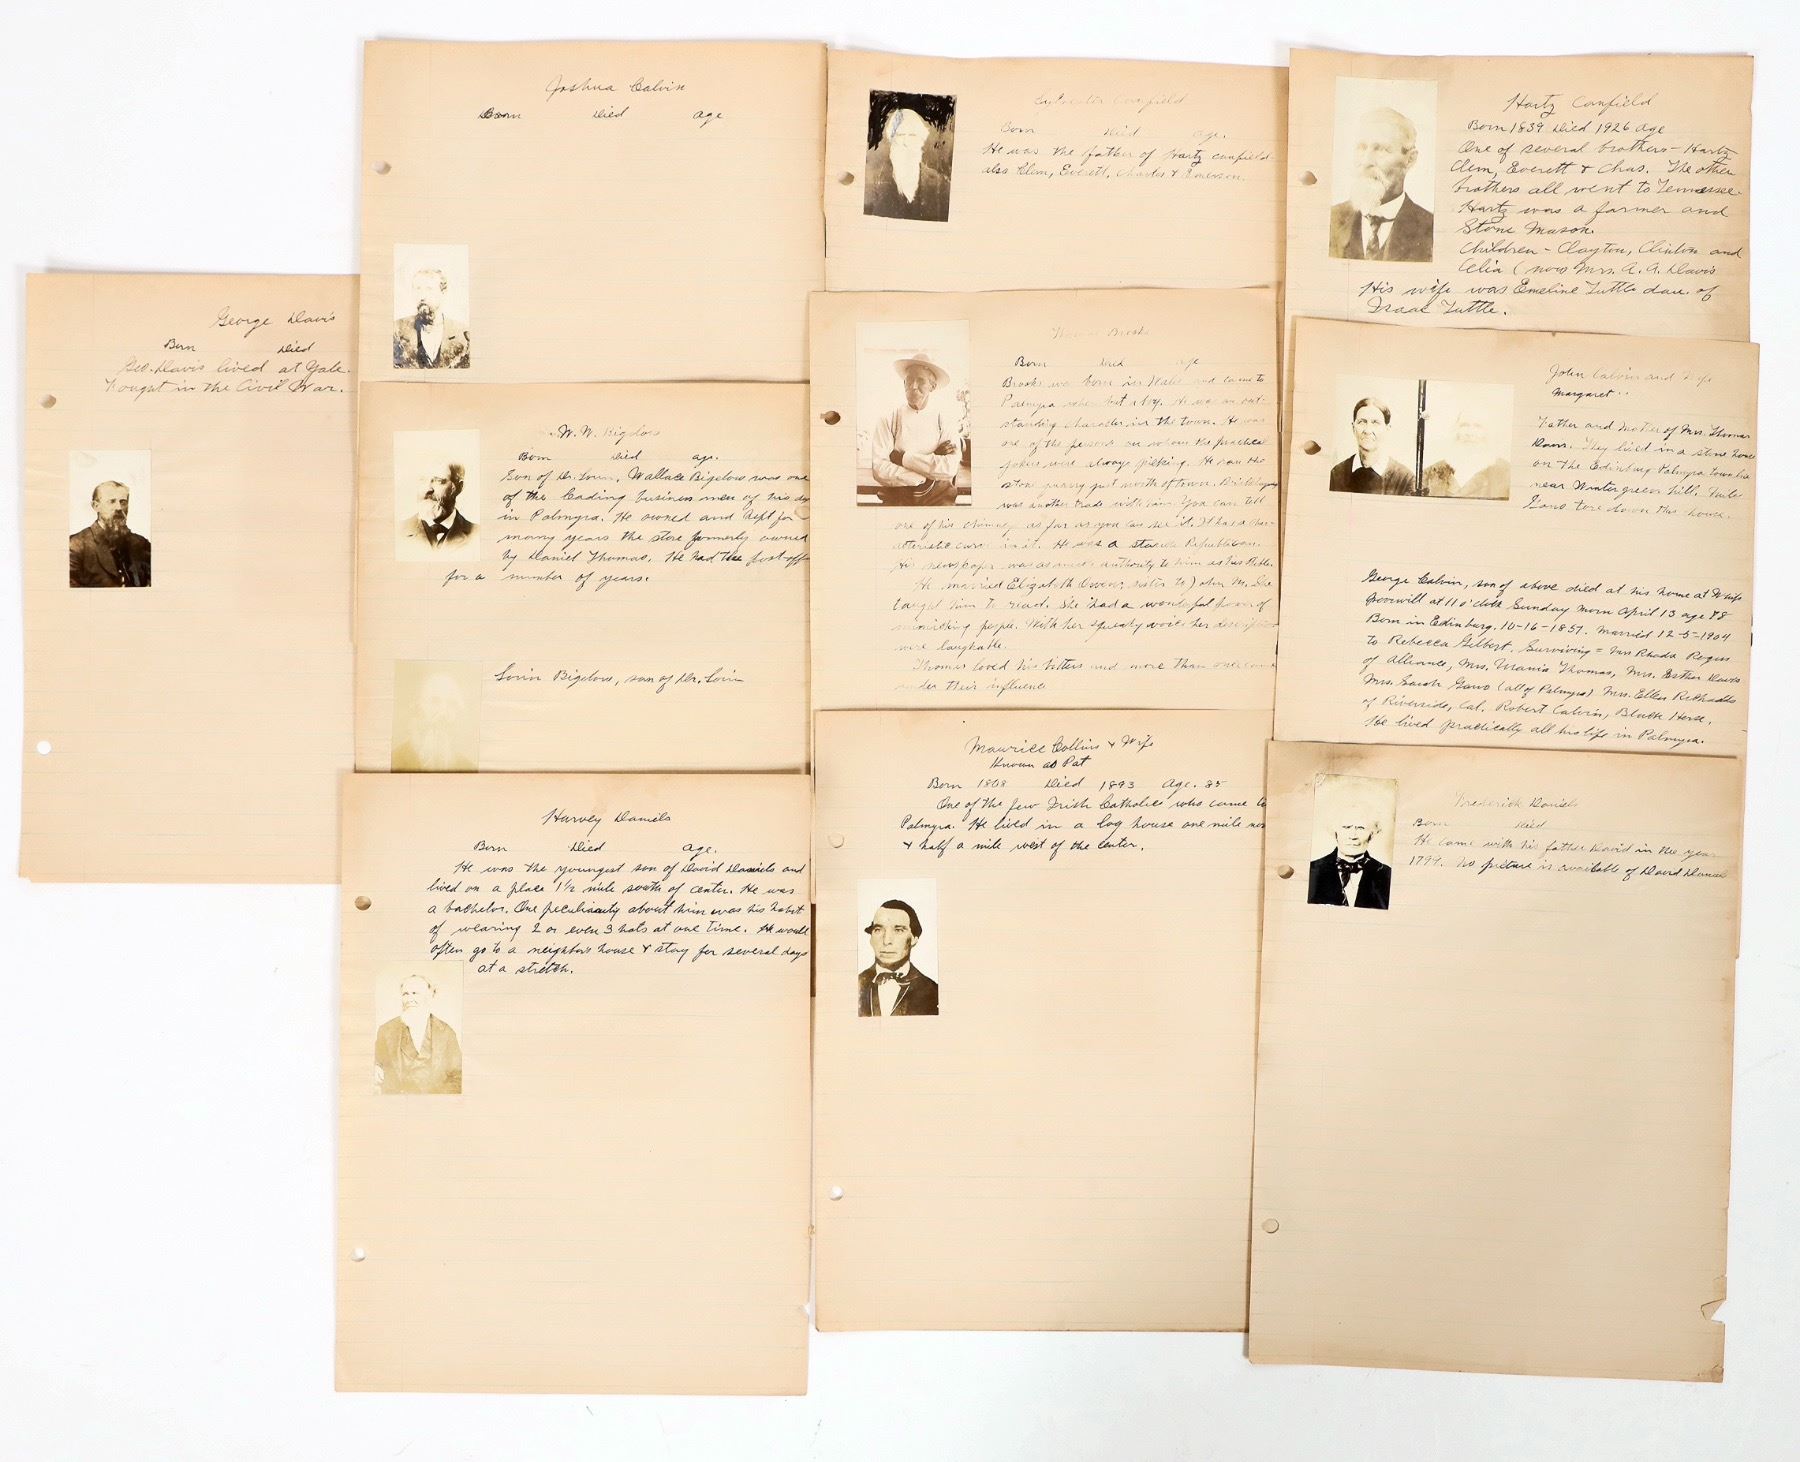 George Davis
Born Died
Geo. Davis lived at Yale.
Fought in the Civil War.
Joshua Calvin
Born Died age
W. W. Bigelow
Born Died age.
Son of Dr. Lorin, Wallace Bigelow was one
of the leading business men of his day
in Palmyra. He owned and kept for
many years the store formerly owned
by Daniel Thomas. He had the post off
for a number of years.
Lorin Bigelow, son of Dr. Lorin
Harvey Daniels
Born Died age.
He was the youngest son of David Daniels and
lived on a place 1½ mile south of center. He was
a bachelor. One peculiarity about him was his habit
of wearing 2 or even 3 hats at one time. He would
often go to a neighbor's house & stay for several days
at a stretch.
Sylvester Canfield
Born Died age.
He was the father of Hartz Canfield
also Clem, Everett, Charles & Emerson.
Thomas Brooks
Born Died age
Brooks was born in Wales and came to
Palmyra when but a boy. He was an out-
standing character in the town. He was
one of the persons on whom the practical
jokers were always picking. He ran the
stone quarry just north of town. Bricklaying
was another trade with him. You can tell
one of his chimneys as far as you can see it. It has a char-
acteristic curve in it. He was a staunch Republican.
His newspaper was as much authority to him as his Bible.
He married Elizabeth Owens, sister to John M. She
taught him to read. She had a wonderful power of
mimicking people. With her squeaky voice her description
were laughable.
Thomas loved his bitters and more than once came
under their influence
Maurice Collins & Wife
Known as Pat
Born 1808 Died 1893 Age. 85
One of the few Irish Catholics who came to
Palmyra. He lived in a log house one mile nor
& half a mile west of the center.
Hartz Canfield
Born 1839 Died 1926 age
One of several brothers - Hartz
Clem, Everett & Chas. The other
brothers all went to Tennessee.
Hartz was a farmer and
Stone Mason.
Children - Clayton, Clinton and
Celia (now Mrs. A. A. Davis
His wife was Emeline Tuttle dau. of
Isaac Tuttle.
John Calvin and Wife
Margaret
Father and Mother of Mrs. Thomas
Davis. They lived in a stone house
on the Edinburg Palmyra town line
near Wintergreen hill.
tore down this house.
George Calvin, son of above died at his home at
at 11 o'clock Sunday morn April 13 age 78
Born in Edinburg. 10-16-1857. Married 12-5-1904
to Rebecca Gilbert. Surviving = Mrs Rhoda Rogers
of Alliance, Mrs. Urania Thomas, Mrs. Esther Davis
Mrs. Sarah (all of Palmyra) Mrs. Ellen Richards
of Riverside, Cal. Robert Calvin, Black Horse.
He lived practically all his life in Palmyra.
Frederick Daniels
Born Died
He came with his father David in the year
1799. No picture is available of David Daniels